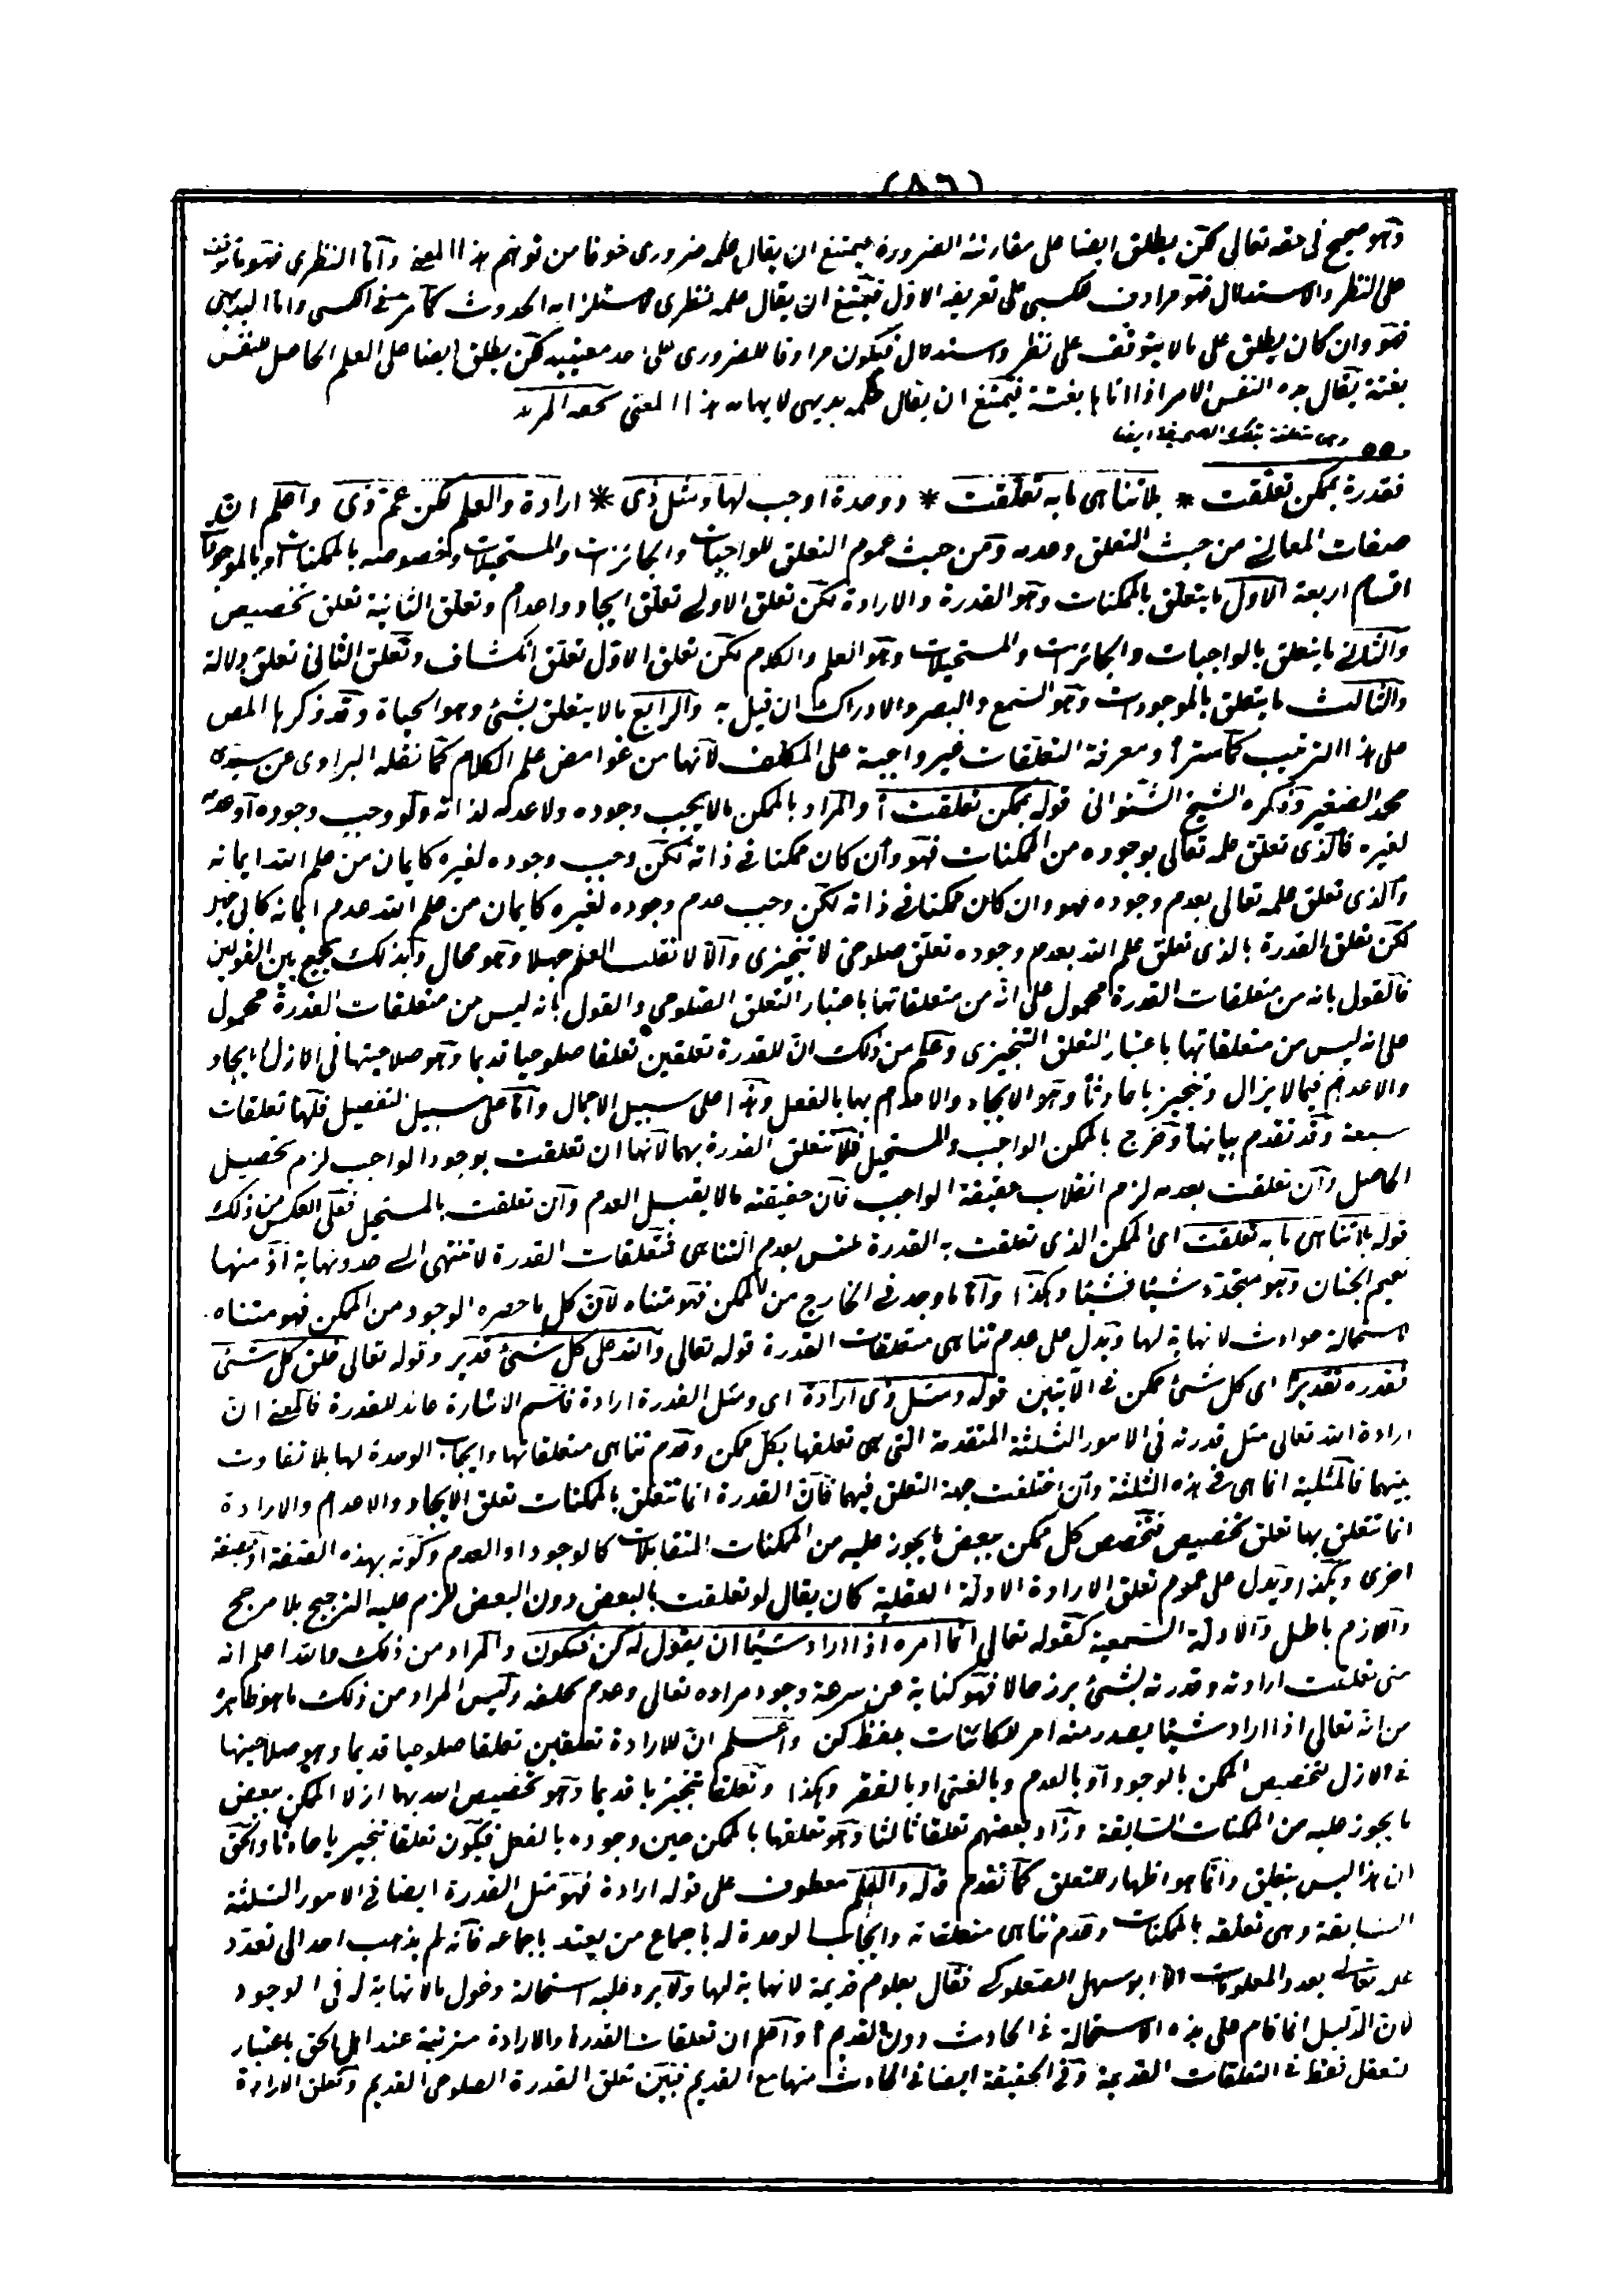 (٨٦)
وهو صحيح فى حقه تعالى لكن يطلق ايضا على مقارنة الضرورة فيمتنع ان يقال علمه ضرورى خوفا من توهم هذا المعنى وأما النظرى فهو ما توقف
على النظر والاستدلال فهو مرادف للكسبى على تعريفه الاول فيمتنع ان يقال علمه نظرى لاستلزامه الحدوث كما مر فى الكسبى واما البديهى
فهو وان كان يطلق على ما لا يتوقف على نظر واستدلال فيكون مرادفا للضرورى على احد معنييه لكن يطلق ايضا على العلم الحاصل للنفس
بغتة يقال بده النفس الامر اذا اتاها بغتة فيمتنع ان يقال علمه بديهى لايهامه هذا المعنى
فقدرة بممكن تعلقت * بلا تناهى ما به تعلقت * ووحدة اوجب لها ومثل ذى * ارادة والعلم لكن عم ذى واعلم ان
صفات المعانى من حيث التعلق وعدمه ومن حيث عموم التعلق للواجبات والجائزات والمستحيلات وخصوصه بالممكنات او بالموجودات
اقسام اربعة الاول ما يتعلق بالممكنات وهو القدرة والارادة لكن تعلق الاولى تعلق ايجاد واعدام وتعلق الثانية تعلق تخصيص
والثانى ما يتعلق بالواجبات والجائزات والمستحيلات وهو العلم والكلام لكن تعلق الاول تعلق انكشاف وتعلق الثانى تعلق دلالة
والثالث ما يتعلق بالموجودات وهو السمع والبصر والادراك ان قيل به والرابع ما لا يتعلق بشئ وهو الحياة وقد ذكرها المص
على هذا الترتيب كما سترا ومعرفة التعلقات غير واجبة على المكلف لانها من غوامض علم الكلام كما نقله البراوى عن سيده
محمد الصغير وذكره الشيخ الشنوانى قوله بممكن تعلقت أ والمراد بالممكن ما لا يجب وجوده ولا عدمه لذاته ولو وجب وجوده أو عدمه
لغيره فالذى تعلق علمه تعالى بوجوده من الممكنات فهو وأن كان ممكنا فى ذاته لكن وجب وجوده لغيره كايمان من علم الله ايمانه
والذى تعلق علمه تعالى بعدم وجوده فهو وان كان ممكنا فى ذاته لكن وجب عدم وجوده لغيره كايمان من علم الله عدم ايمانه كابى جهل
لكن تعلق القدرة بالذى تعلق علم الله بعدم وجوده تعلق صلوحى لا تنجيزى والا لانقلب العلم جهلا وهو محال وبذلك يجمع بين القولين
فالقول بانه من متعلقات القدرة محمول على انه من متعلقاتها باعتبار التعلق الصلوحى والقول بانه ليس من متعلقات القدرة محمول
على انه ليس من متعلقاتها باعتبار التعلق التنجيزى وعلم من ذلك ان للقدرة تعلقين تعلقا صلوحيا قديما وهو صلاحيتها فى الازل للايجاد
والاعدام فيما لا يزال وتنجيزيا حادثا وهو الايجاد والاعدام بها بالفعل وهذا على سبيل الاجمال وأما على سبيل التفصيل فلها تعلقات
سبعة وقد تقدم بيانها وخرج بالممكن الواجب والمستحيل فلا تتعلق القدرة بهما لأنها ان تعلقت بوجود الواجب لزم تحصيل
الحاصل وأن تعلقت بعدمه لزم انقلاب حقيقة الواجب فأن حقيقته ما لا يقبل العدم وأن تعلقت بالمستحيل فعلى العكس من ذلك
قوله بلا تناهى ما به تعلقت اى الممكن الذى تعلقت به القدرة بعدم التناهى فمتعلقات القدرة لا تنتهى الى حد ونهاية اذ منها
نعيم الجنان وهو متجدد شيئا فشيئا وهكذا وأما ما وجد فى الخارج من الممكن فهو متناه لأن كل ما حصره الوجود من الممكن فهو متناه
لاستحالة حوادث لا نهاية لها ويدل على عدم تناهى متعلقات القدرة قوله تعالى والله على كل شئ قدير وقوله تعالى خلق كل شئ
فقدره تقديرا اى كل شئ ممكن فى الآيتين قوله ومثل ذى ارادة اى ومثل القدرة ارادة فاسم الاشارة عائد للقدرة فالمعنى ان
ارادة الله تعالى مثل قدرته فى الامور الثلثة المتقدمة التى هى تعلقها بكل ممكن وعدم تناهى متعلقاتها وايجاب الوحدة لها بلا تفاوت
بينهما فالمثلية انما هى فى هذه الثلثة وأن اختلفت جهة التعلق فيهما فأن القدرة انما تتعلق بالممكنات تعلق الايجاد والاعدام والارادة
انما تتعلق بها تعلق تخصيص فتخصص كل ممكن ببعض ما يجوز عليه من الممكنات المتقابلات كالوجود او العدم وكونه بهذه الصفة او بصفة
اخرى وهكذا ويدل على عموم تعلق الارادة الادلة العقلية كان يقال لو تعلقت بالبعض دون البعض للزم عليه الترجيح بلا مرجح
واللازم باطل والادلة السمعية كقوله تعالى انما امره اذا اراد شيئا ان يقول له كن فيكون والمراد من ذلك والله اعلم انه
متى تعلقت ارادته وقدرته بشئ برز حالا فهو كناية عن سرعة وجود مراده تعالى وعدم تخلفه وليس المراد من ذلك ما هو ظاهره
من انه تعالى اذا اراد شيئا يصدر منه امر للكائنات بلفظ كن وأعلم ان للارادة تعلقين تعلقا صلوحيا قديما وهو صلاحيتها
فى الازل لتخصيص الممكن بالوجود أو بالعدم وبالغنى او بالفقر وهكذا وتعلقا تنجيزيا قديما وهو تخصيص الله بها ازلا الممكن ببعض
ما يجوز عليه من الممكنات السابقة وزاد بعضهم تعلقا ثالثا وهو تعلقها بالممكن حين وجوده بالفعل فيكون تعلقا تنجيزيا حادثا والحق
ان هذا ليس بتعلق وانما هو اظهار للتعلق كما تقدم قوله والعلم معطوف على قوله ارادة فهو مثل القدرة ايضا فى الامور الثلثة
السابقة وهى تعلقه بالممكنات وعدم تناهى متعلقاته وايجاب الوحدة له باجماع من يعتد باجماعه فأنه لم يذهب احد الى تعدد
علمه تعالى بعدد المعلومات الا ابو سهل الصعلوكى فقال بعلوم قديمة لا نهاية لها ولا يرد عليه استحالة دخول ما لا نهاية له فى الوجود
لان الدليل انما قام على هذه الاستحالة فى الحادث دون القديم أ وأعلم ان تعلقات القدرة والارادة مترتبة عند اهل الحق باعتبار
التعقل فقط فى التعلقات القديمة وفى الحقيقة ايضا فى الحادث منها مع القديم فبين تعلق القدرة الصلوحى القديم وتعلق الارادة